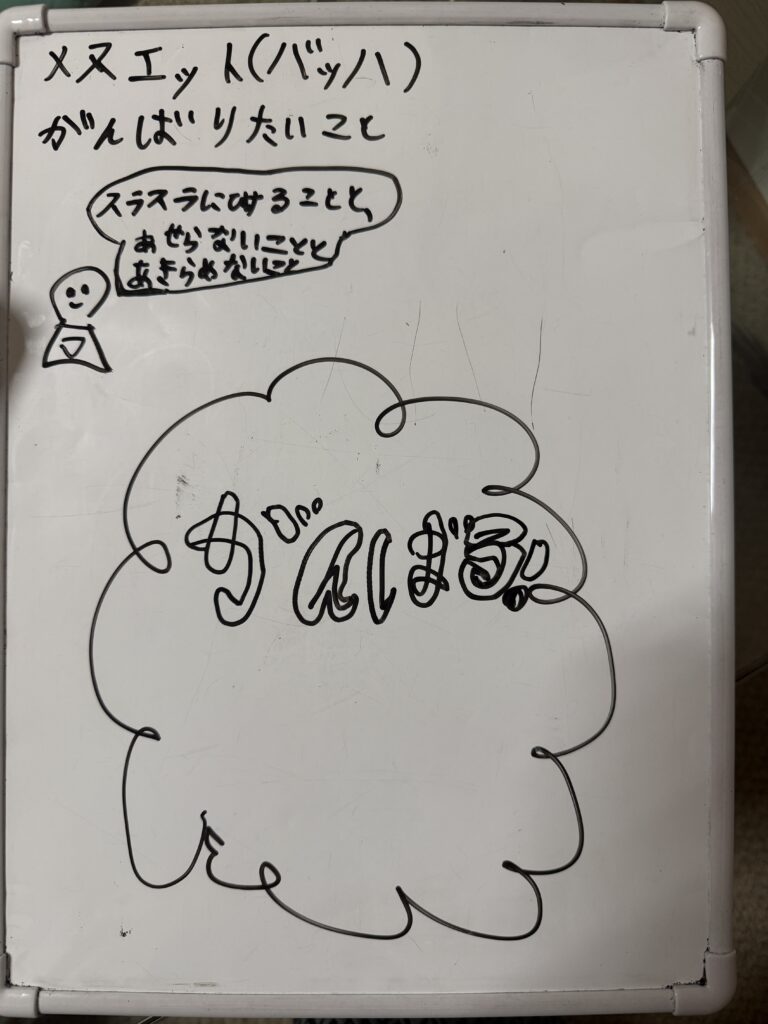 メヌエット(バッハ)
がんばりたいこと
スラスラにひけることと、
あせらないことと
あきらめないこと
がんばる!